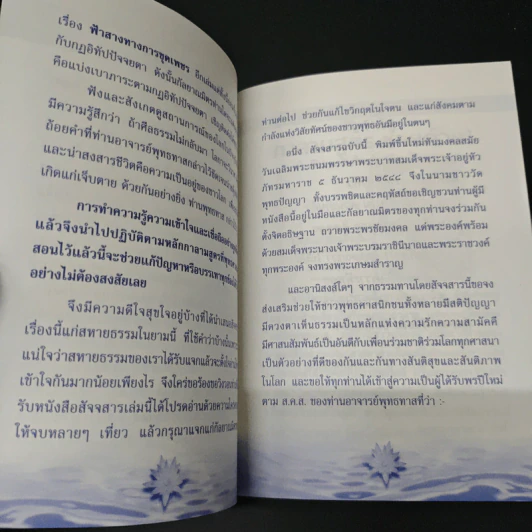 เรื่อง ฟ้าสางทางการขุดเพชร
กับกฎอิทัปปัจจยตา ดังนั้นกัลยาณมิตร
คือแบ่งเบาภาระตามกฎอิทัปปัจจยตา
ฟังและสังเกตดูสถานการณ์ของโลก
มีความรู้สึกว่า ถ้าศีลธรรมไม่กลับมา
ถ้อยคำที่ท่านอาจารย์พุทธทาสกล่าวไว้
และน่าสงสารชีวิตคือความเป็นอยู่ของชาวโลก
เกิดแก่เจ็บตาย ด้วยกันอย่างยิ่ง ท่านพุทธทาส
การทำความรู้ความเข้าใจและเชื่อ
แล้วจึงนำไปปฏิบัติตามหลักกาลามสูตร
สอนไว้แล้วนี้จะช่วยแก้ปัญหาหรือบรรเทา
อย่างไม่ต้องสงสัยเลย
จึงมีความดีใจสุขใจอยู่บ้างที่ได้
เรื่องนี้แก่สหายธรรมในยามนี้ ที่ใช้คำว่าบ้าง
แน่ใจว่าสหายธรรมของเราได้รับแจกแล้วจะ
เข้าใจกันมากน้อยเพียงไร จึงใคร่ขอร้อง
รับหนังสือสัจจสารเล่มนี้ได้โปรดอ่านด้วยความ
ให้จบหลายๆ เที่ยว แล้วกรุณาแจกแก่
ท่านต่อไป ช่วยกันแก้ไขวิกฤตในใจตน และแก่สังคมตาม
กำลังแห่งวิสัยทัศน์ของชาวพุทธอันมีอยู่ในตนๆ
อนึ่ง สัจจสารฉบับนี้ พิมพ์ขึ้นใหม่ทันมงคลสมัย
วันเฉลิมพระชนมพรรษาพระบาทสมเด็จพระเจ้าอยู่หัว
ภัทรมหาราช ๕ ธันวาคม ๒๕๔๔ จึงในนามชาววัด
พุทธปัญญา ทั้งบรรพชิตและคฤหัสถ์ขอเชิญชวนท่านผู้มี
หนังสือนี้อยู่ในมือและกัลยาณมิตรของทุกท่านจงร่วมกัน
ตั้งจิตอธิษฐาน ถวายพระพรชัยมงคล แด่พระองค์พร้อม
ด้วยสมเด็จพระนางเจ้าพระบรมราชินีนาถและพระราชวงศ์
ทุกพระองค์ จงทรงพระเกษมสำราญ
และอานิสงส์ใดๆ จากธรรมทานโดยสัจจสารนี้ขอจง
ส่งเสริมช่วยให้ชาวพุทธศาสนิกชนทั้งหลายมีสติปัญญา
มีดวงตาเห็นธรรมเป็นหลักแห่งความรักความสามัคคี
มีศาสนสัมพันธ์เป็นอันดีกับเพื่อนร่วมชาติร่วมโลกทุกศาสนา
เป็นตัวอย่างที่ดีของกันและกันทางสันติสุขและสันติภาพ
ในโลก และขอให้ทุกท่านได้เข้าสู่ความเป็นผู้ได้รับพรปีใหม่
ตาม ส.ค.ส. ของท่านอาจารย์พุทธทาสที่ว่า :-